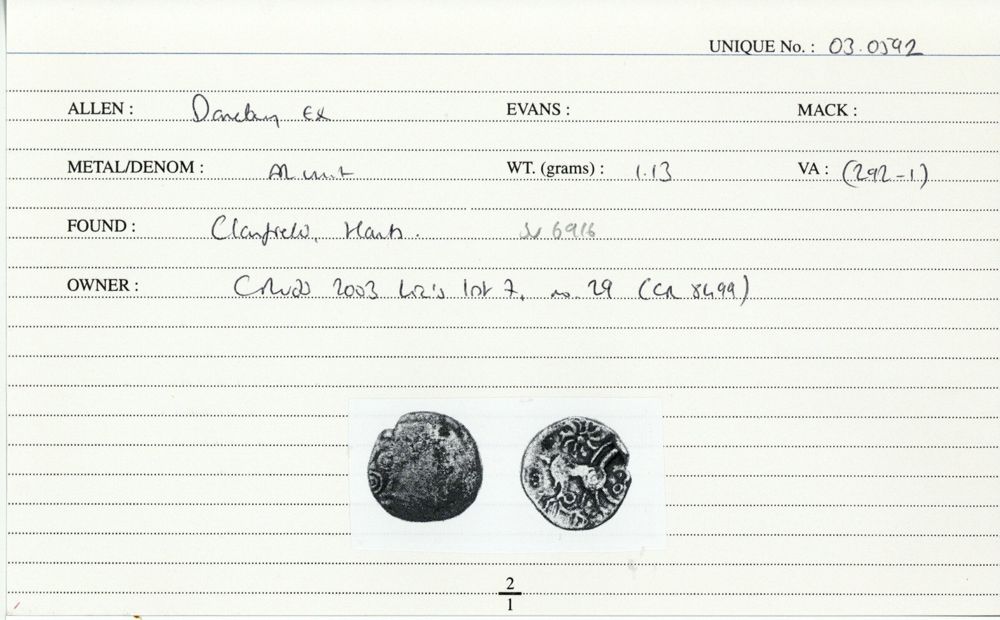 UNIQUE No. : 03.0592
ALLEN : Danebury Ex EVANS : MACK :
METAL/DENOM : AR unit WT. (grams) : 1.13 VA : (292-1)
FOUND : Clanfield, Hants. SU 6916
OWNER : 2003 Liz's list 7, no. 29 (CR 8499)
2
1